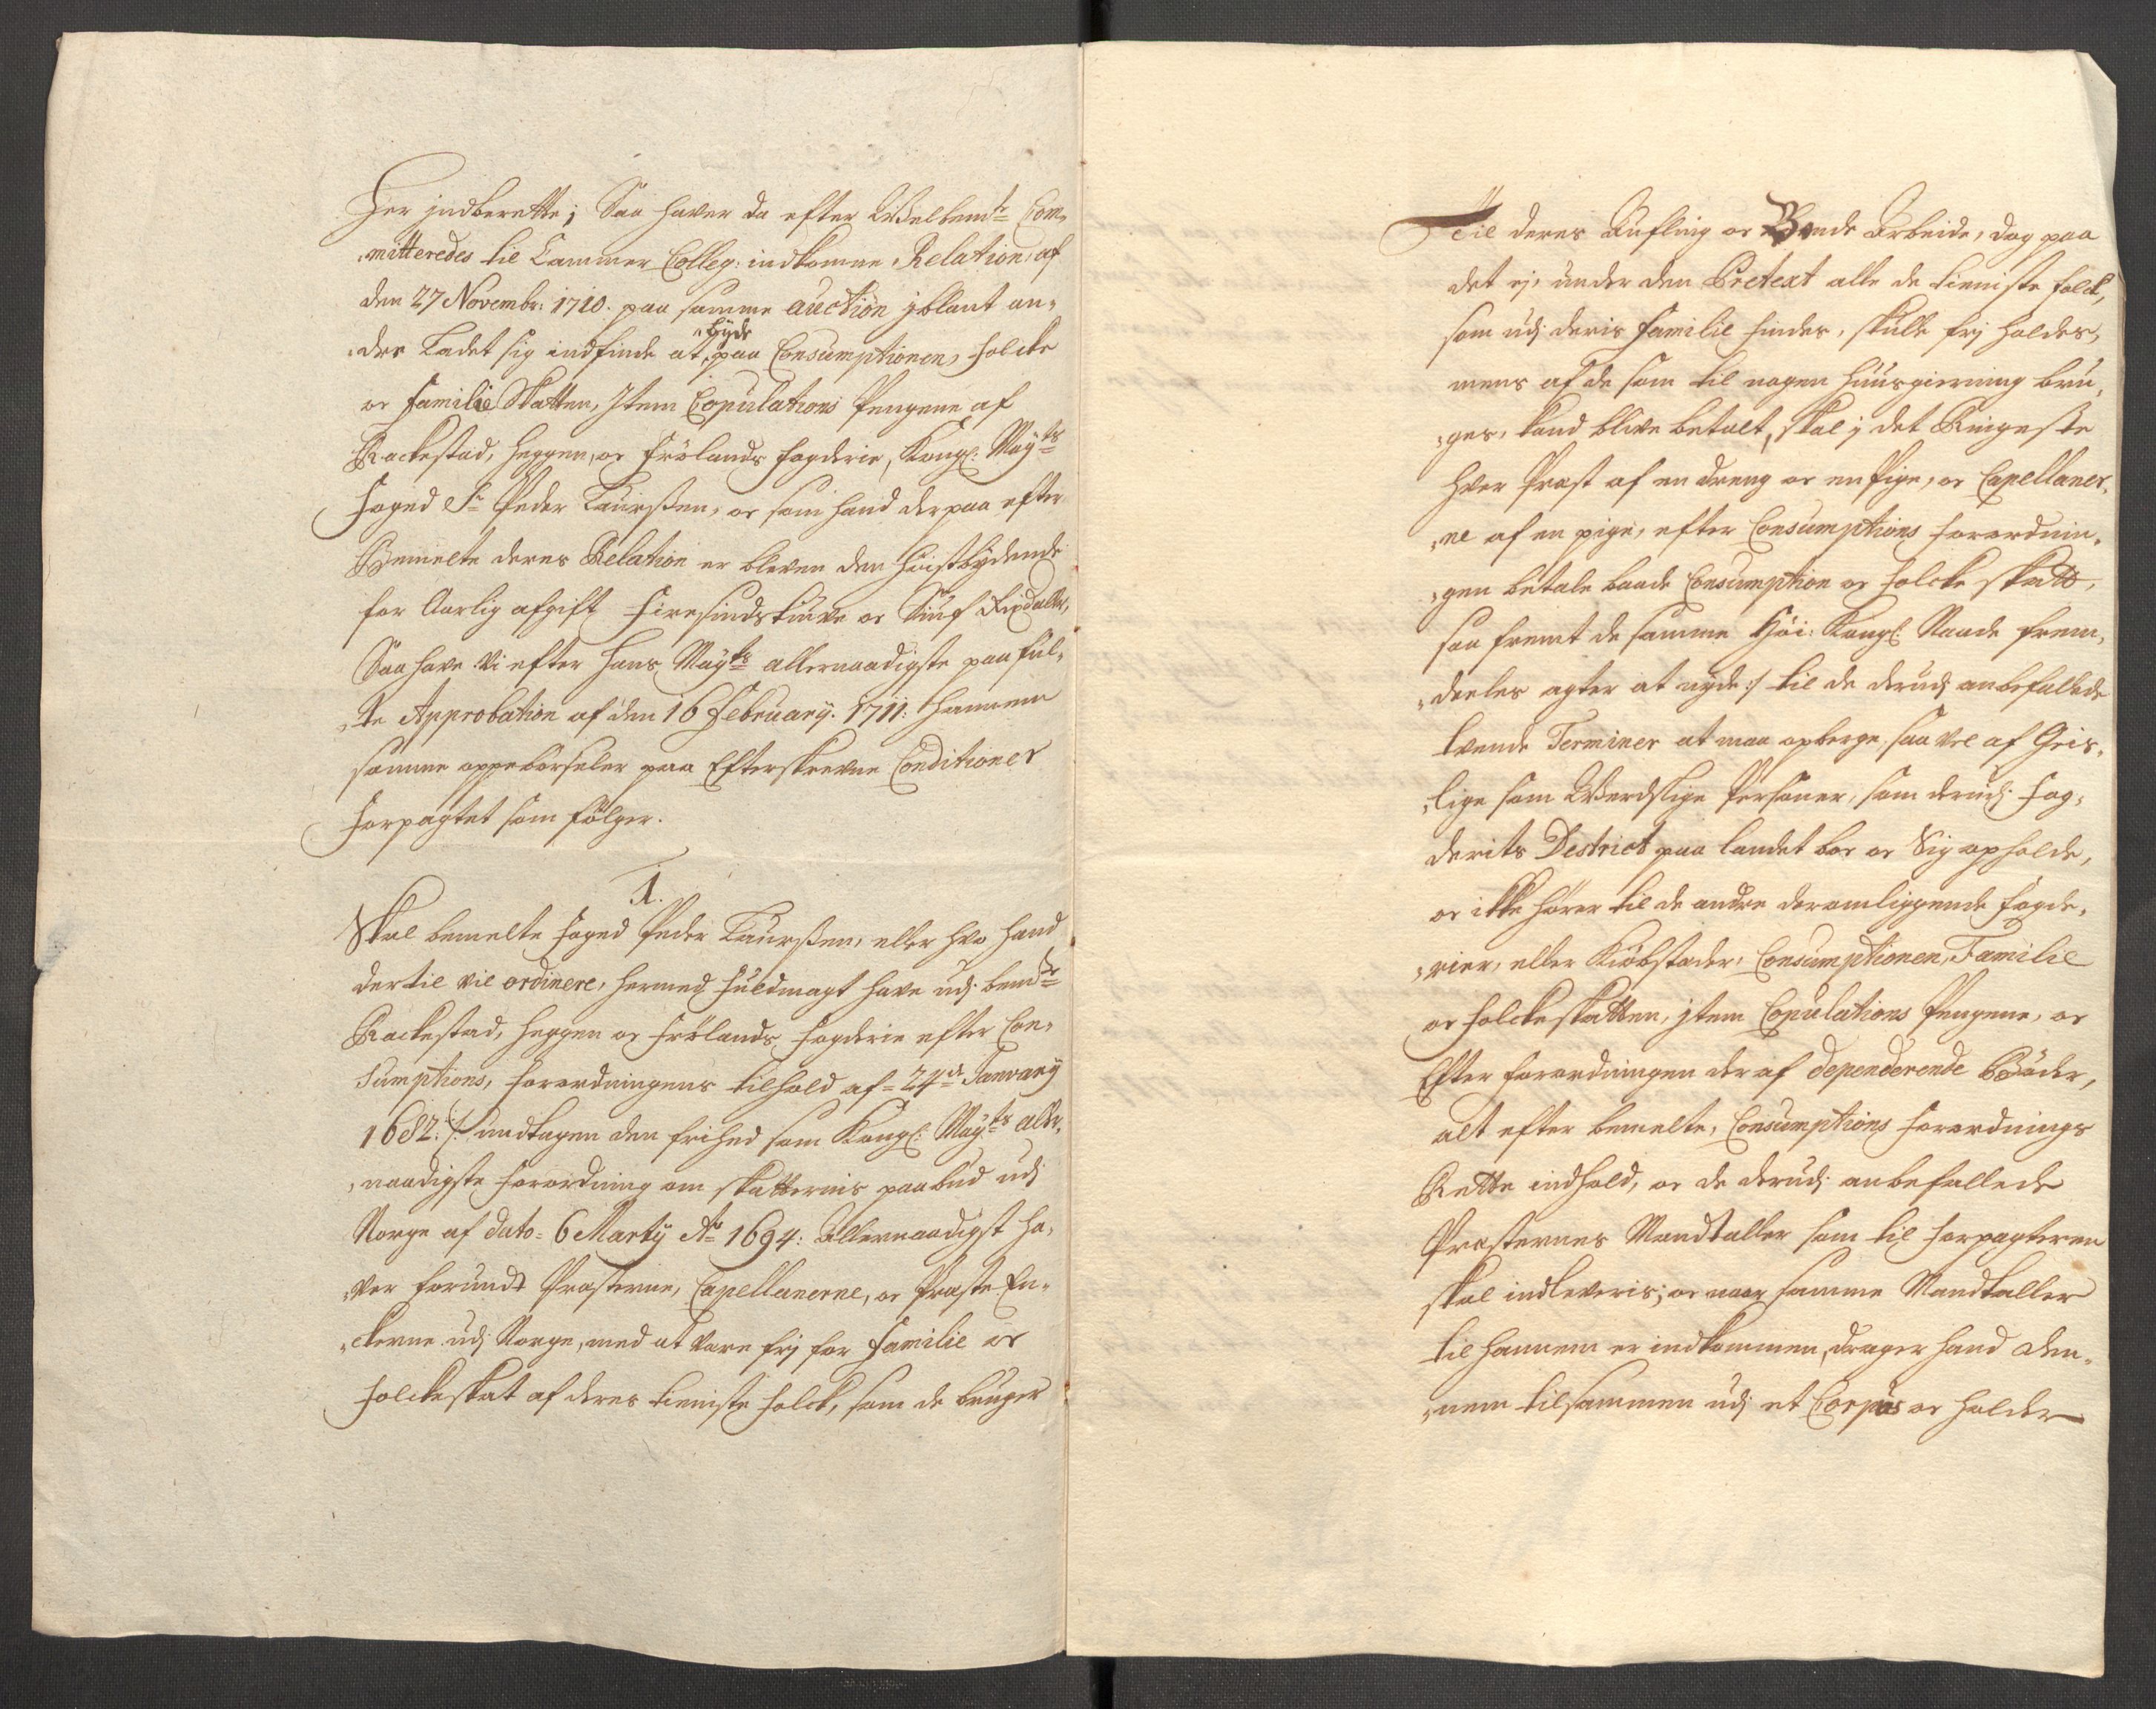 Her indberette; Saa haver da efter Welbemte Com-
mitteredes til Cammer Colleg: indkomne Relation, af
den 27 Novembr: 1710. paa samme auction iblant an-
dre Ladet sig indfinde at byde paa Consumptionen, Folcke
oc Familie Skatten, Item Copulations Pengene af
Rackestad, Heggen, oc Frölands Fogderie, Kongl: Mayts
Foged Sr Peder Laurssen, oc som hand der paa efter
Bemelte deres Relation er bleven den höistbydende
for Aarlig afgift Firesindstiuve oc Siuf Rixdaller,
Saa have Vi efter Hans Mayts allernaadigste paa ful-
te Approbation af den 16 February. 1711: hannem
samme oppebörseler paa Efterskrevne Conditioner
Forpagtet som fölger.
1.
Skal bemelte Foged Peder Laurssen, eller hvo hand
dertil vil ordinere, hermed fuldmagt have udj bemte
Rackestad, Heggen oc Frölands Fogderie efter Con-
sumptions, Forordningens tilhold af 24de January
1682:/: undtagen den frihed som Kongl: Mayts aller-
naadigste Forordning om skatternis paabud udj
Norge af dato 6 Marty Ao 1694: Allernaadigst ha-
ver forundt Præsterne, Capellanerne, oc Præste En-
ckerne udj Norge, med at være frj for Familie oc
Folckeskat af deres tieniste Folck, som de bruger
Til deres Aufling oc Bonde Arbeide, dog paa
det ej under den Pretext alle de tieniste folck,
som udj deris Familie findes, skulle frj holdes,
mens af de som til nogen huusgierning bru-
ges, kand blive betalt, skal j det Ringeste
hver Præst af en dreng oc en Pige, oc Capellaner-
ne af en pige, efter Consumptions Forordnin-
gen betale baade Consumption oc Folcke skatt,
saa fremt de samme Höi: Kongl: Naade frem-
deeles agter at nyde:/ til de derudj anbefallede
tvende Terminer at maa opberge, saa vel af Geis-
lige som Werdslige Personer, som derudj Fog-
derits District paa landet boe oc Sig opholde,
oc ikke hörer til de andre deromliggende Fogde-
rier, eller Kiöbstæder, Consumptionen, Familie
oc Folckeskatten, jtem Copulations Pengene, oc
Efter Forordningen der af dependerende Böder,
alt efter bemelte, Consumptions Forordnings
Rette indhold, oc de derudj anbefallede
Præsternes Mandtaller som til Forpagteren
skal indleveris; oc naar samme Mandtaller
til hannem er indkommen, drager hand dem-
nem tilsammen udj et Corpus oc holder